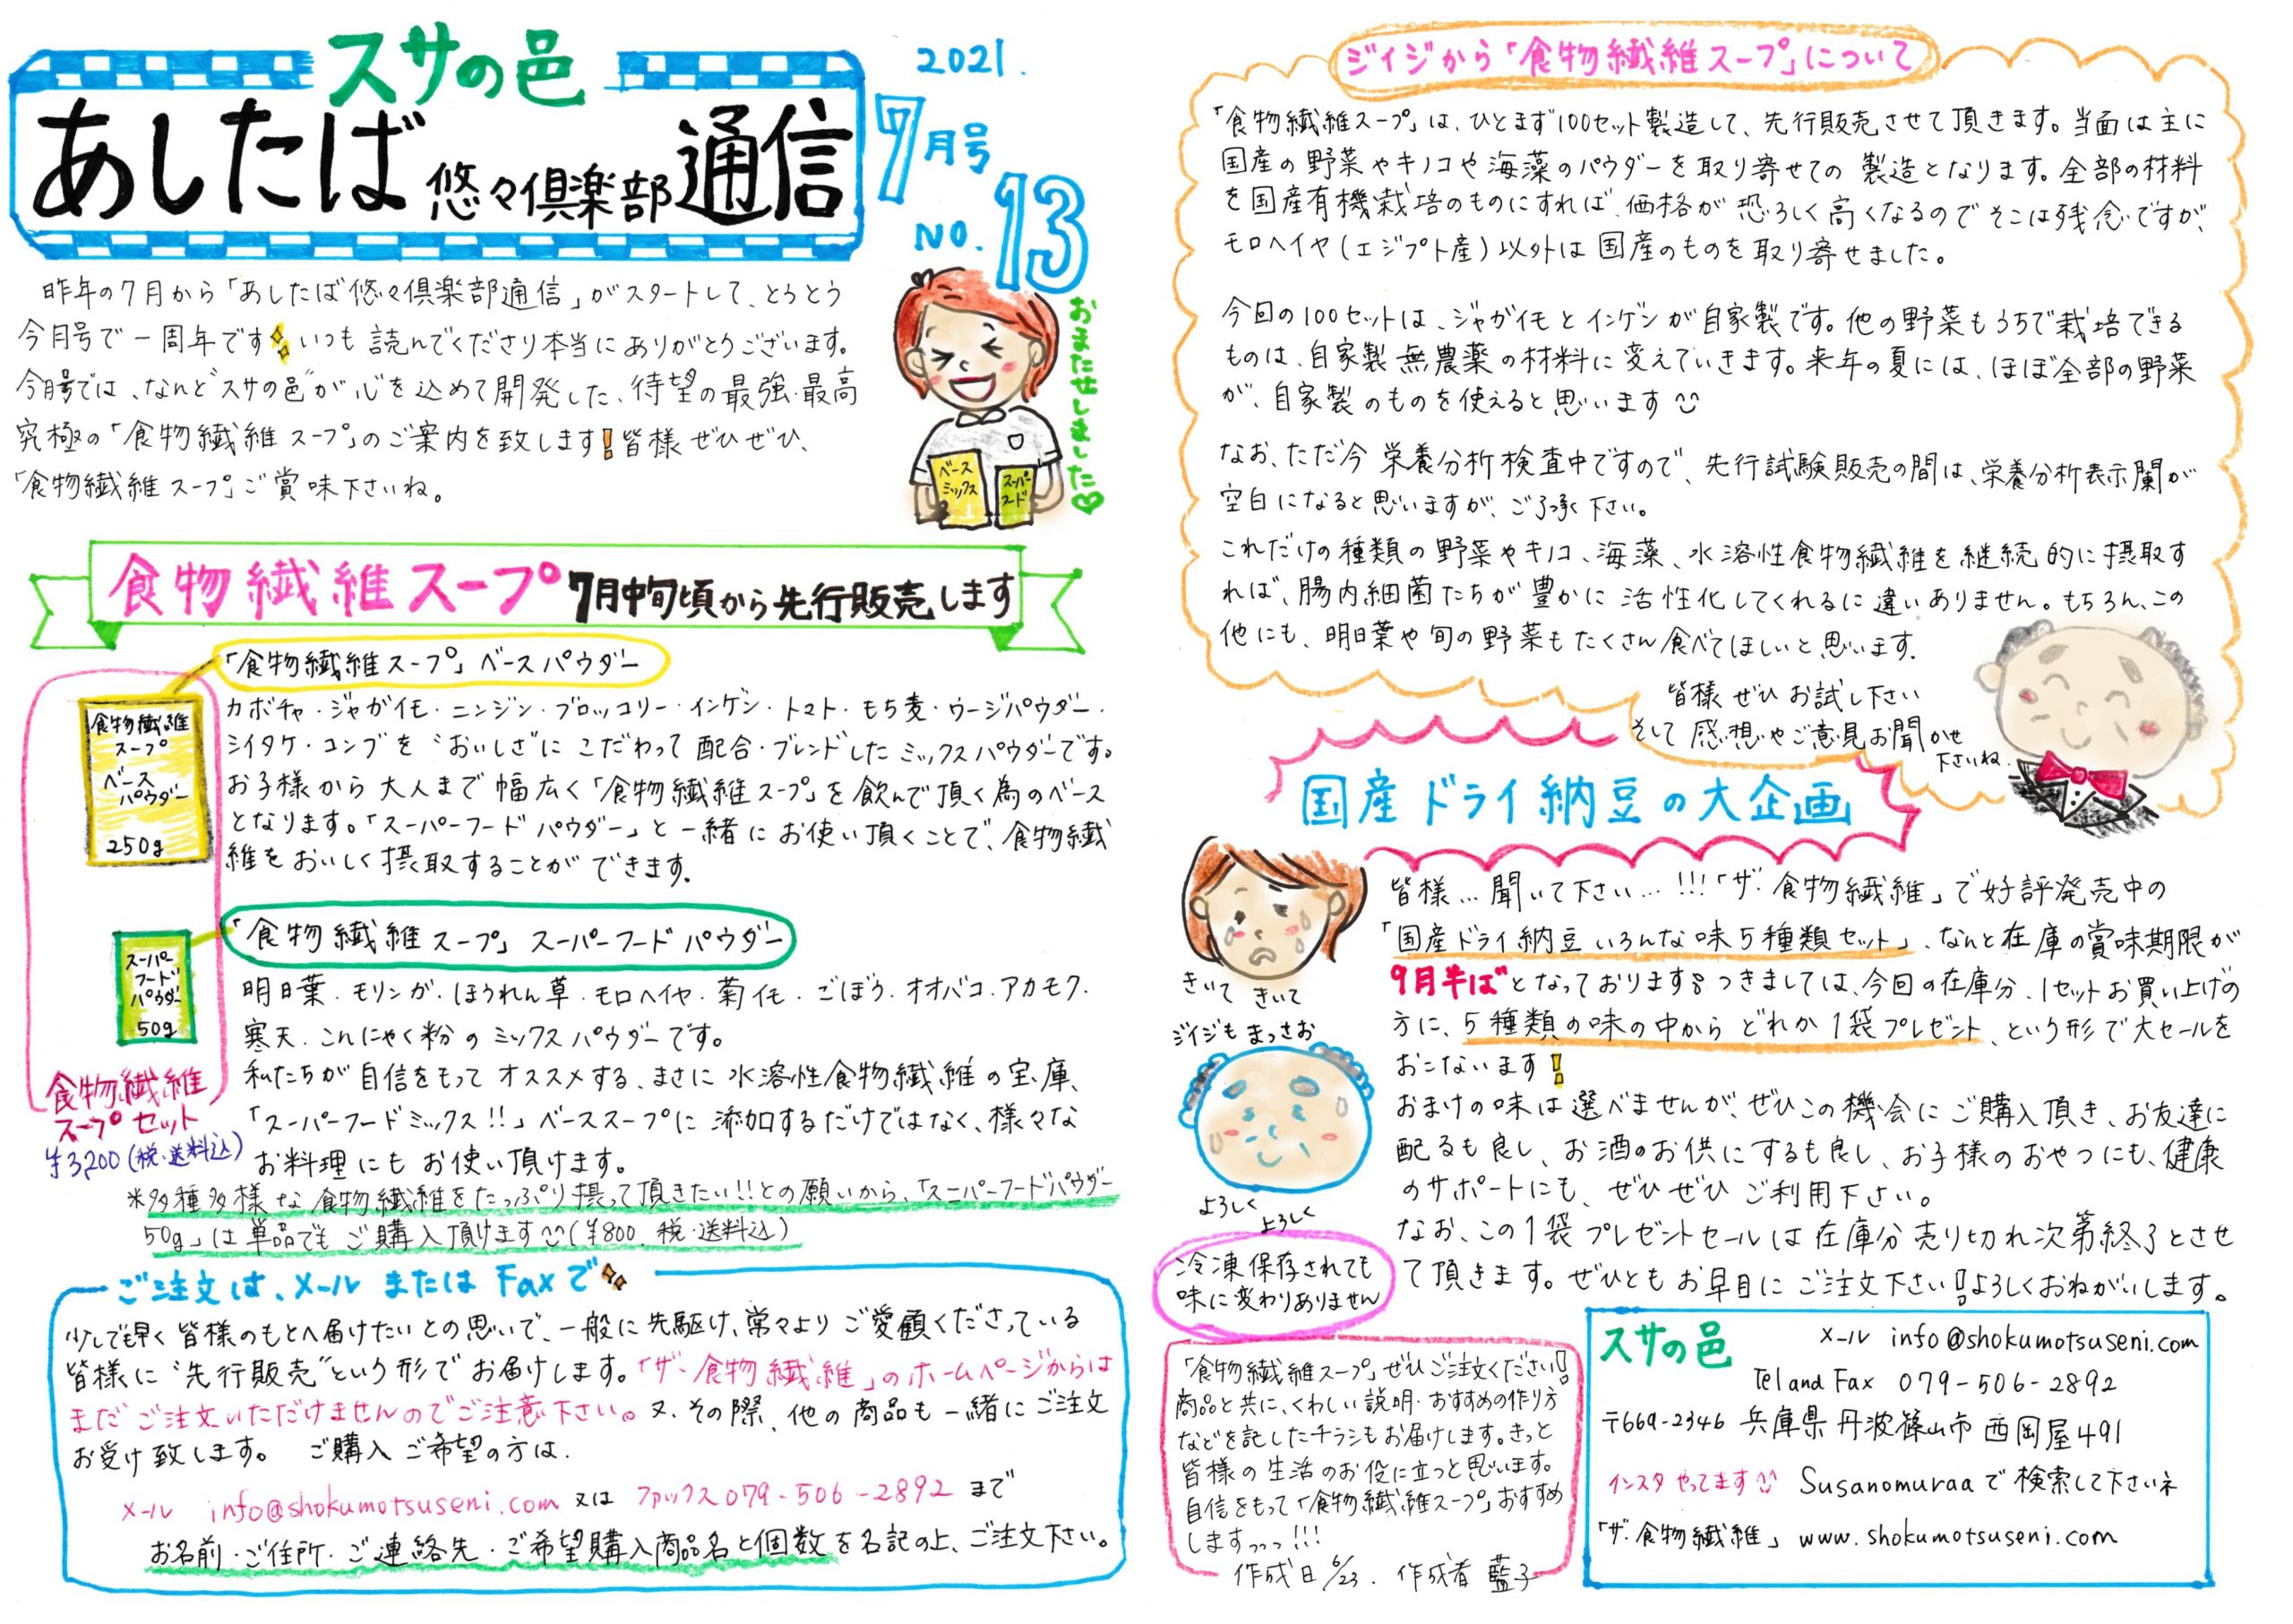 スサの邑
あしたば悠々倶楽部通信
2021.
7月号
NO.13
おまたせしました
ベース
ミックス
スーパー
フード
昨年の7月から「あしたば悠々倶楽部通信」がスタートして、とうとう
今月号で一周年です いつも読んでくださり本当にありがとうございます。
今月号では、なんと"スサの邑"が心を込めて開発した、待望の最強・最高
究極の「食物繊維スープ」のご案内を致します!皆様ぜひぜひ、
「食物繊維スープ」ご賞味下さいね。
食物繊維スープ 7月中旬頃から先行販売します
「食物繊維スープ」ベースパウダー
食物繊維
スープ
ベース
パウダー
250g
カボチャ・ジャガイモ・ニンジン・ブロッコリー・インゲン・トマト・もち麦・ウージパウダー・
シイタケ・コンブを"おいしさ"にこだわって配合・ブレンドしたミックスパウダーです。
お子様から大人まで幅広く「食物繊維スープ」を飲んで頂く為のベース
となります。「スーパーフードパウダー」と一緒にお使い頂くことで、食物繊
維をおいしく摂取することができます。
「食物繊維スープ」スーパーフードパウダー
スーパー
フード
パウダー
50g
明日葉・モリンガ・ほうれん草・モロヘイヤ・菊イモ・ごぼう・オオバコ・アカモク・
寒天・こんにゃく粉のミックスパウダーです。
私たちが自信をもってオススメする、まさに水溶性食物繊維の宝庫、
「スーパーフードミックス!!」ベーススープに添加するだけではなく、様々な
お料理にもお使い頂けます。
食物繊維
スープセット
¥3,200(税・送料込)
※多種多様な食物繊維をたっぷり摂って頂きたい!!との願いから、「スーパーフードパウダー
50g」は単品でもご購入頂けます(¥800.税・送料込)
ご注文は、メールまたはFaxで
少しでも早く皆様のもとへ届けたいとの思いで、一般に先駆け、常々よりご愛顧くださっている
皆様に"先行販売"という形でお届けします。「ザ・食物繊維」のホームページからは
まだご注文いただけませんのでご注意下さい。又、その際、他の商品も一緒にご注文
お受け致します。 ご購入ご希望の方は.
メール info@shokumotsuseni.com 又は ファックス079-506-2892 まで
お名前・ご住所・ご連絡先・ご希望購入商品名と個数を名記の上、ご注文下さい。
ジイジから「食物繊維スープ」について
「食物繊維スープ」は、ひとまず100セット製造して、先行販売させて頂きます。当面は主に
国産の野菜やキノコや海藻のパウダーを取り寄せての製造となります。全部の材料
を国産有機栽培のものにすれば、価格が恐ろしく高くなるのでそこは残念ですが、
モロヘイヤ(エジプト産)以外は国産のものを取り寄せました。
今回の100セットは、ジャガイモとインゲンが自家製です。他の野菜もうちで栽培できる
ものは、自家製無農薬の材料に変えていきます。来年の夏には、ほぼ全部の野菜
が、自家製のものを使えると思います
なお、ただ今栄養分析検査中ですので、先行試験販売の間は、栄養分析表示欄が
空白になると思いますが、ご了承下さい。
これだけの種類の野菜やキノコ、海藻、水溶性食物繊維を継続的に摂取す
れば、腸内細菌たちが豊かに活性化してくれるに違いありません。もちろん、この
他にも、明日葉や旬の野菜もたくさん食べてほしいと思います.
皆様ぜひお試し下さい
そして感想やご意見お聞かせ
下さいね.
国産ドライ納豆の大企画
きいて きいて
ジイジもまっさお
よろしく
よろしく
皆様…聞いて下さい…!!!「ザ・食物繊維」で好評発売中の
「国産ドライ納豆いろんな味5種類セット」、なんと在庫の賞味期限が
9月半ばとなっております。つきましては、今回の在庫分、1セットお買い上げの
方に、5種類の味の中からどれか1袋プレゼント、という形で大セールを
おこないます!
おまけの味は選べませんが、ぜひこの機会にご購入頂き、お友達に
配るも良し、お酒のお供にするも良し、お子様のおやつにも、健康
のサポートにも、ぜひぜひご利用下さい。
なお、この1袋プレゼントセールは在庫分売り切れ次第終了とさせ
て頂きます。ぜひともお早目にご注文下さい!よろしくおねがいします。
冷凍保存されても
味に変わりありません
「食物繊維スープ」ぜひご注文ください!
商品と共に、くわしい説明・おすすめの作り方
などを記したチラシもお届けします。きっと
皆様の生活のお役に立つと思います。
自信をもって「食物繊維スープ」おすすめ
しますっっっ!!!
作成日6/23. 作成者 藍子
スサの邑
メール info@shokumotsuseni.com
Tel and Fax 079-506-2892
〒669-2346 兵庫県丹波篠山市西岡屋491
インスタやってます Susanomuraaで検索して下さいネ
「ザ・食物繊維」 www.shokumotsuseni.com